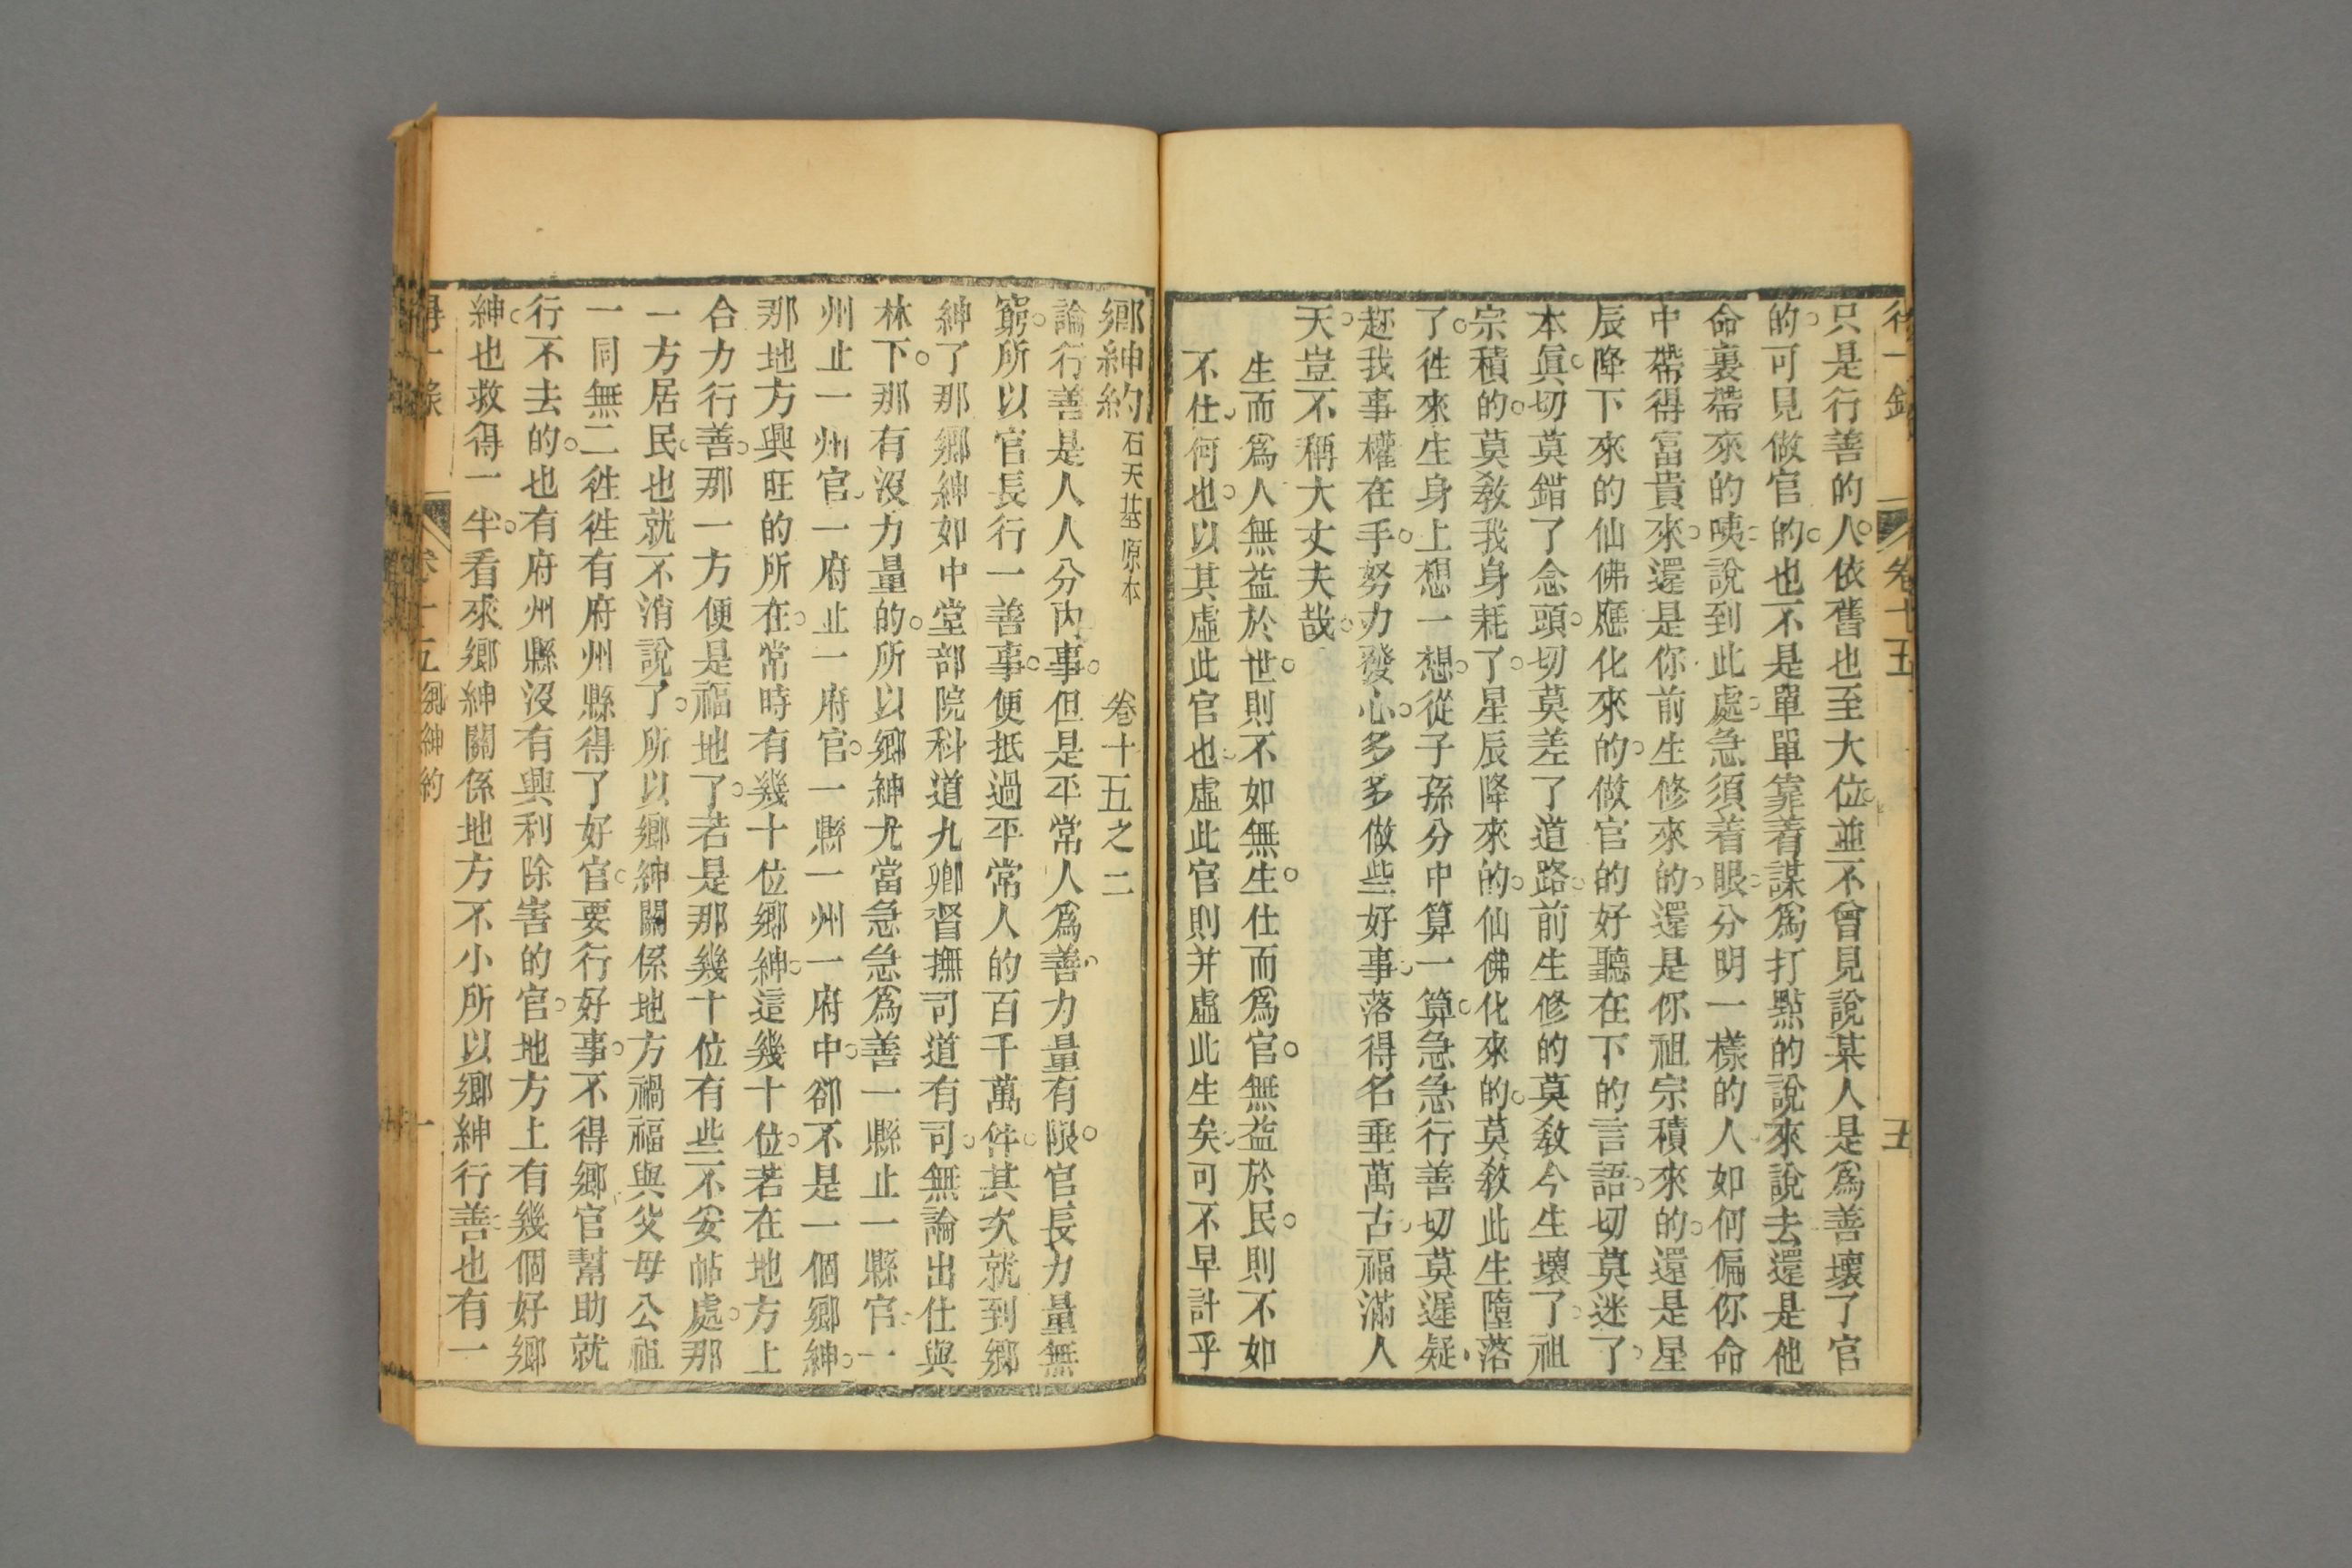 得一錄 卷十五 五
只是行善的人依舊也至大位並不曾見說某人是爲善壞了官
的可見做官的也不是單單靠着謀爲打點的說來說去還是他
命裏帶來的咦說到此處急須着眼分明一樣的人如何偏你命
中帶得富貴來還是你前生修來的還是你祖宗積來的還是星
辰降下來的仙佛應化來的做官的好聽在下的言語切莫迷了
本眞切莫錯了念頭切莫差了道路前生修的莫敎今生壞了祖
宗積的莫敎我身耗了星辰降來的仙佛化來的莫敎此生墮落
了徃來生身上想一想從子孫分中算一算急急行善切莫遲疑
趂我事權在手努力發心多多做些好事落得名垂萬古福滿人
天豈不稱大丈夫哉
生而爲人無益於世則不如無生仕而爲官無益於民則不如
不仕何也以其虛此官也虛此官則并虛此生矣可不早計乎
鄉紳約 石天基原本 卷十五之二
論行善是人人分內事但是平常人爲善力量有限官長力量無
窮所以官長行一善事便抵過平常人的百千萬件其次就到鄉
紳了那鄉紳如中堂部院科道九卿督撫司道有司無論出仕與
林下那有沒力量的所以鄉紳尤當急急爲善一縣止一縣官一
州止一州官一府止一府官一縣一州一府中卻不是一個鄉紳
那地方興旺的所在常時有幾十位鄉紳這幾十位若在地方上
合力行善那一方便是福地了若是那幾十位有些不妥帖處那
一方居民也就不消說了所以鄉紳關係地方禍福與父母公祖
一同無二徃徃有府州縣得了好官要行好事不得鄉官幫助就
行不去的也有府州縣沒有興利除害的官地方上有幾個好鄉
紳也救得一半看來鄉紳關係地方不小所以鄉紳行善也有一
得一錄 卷十五 鄉紳約 一